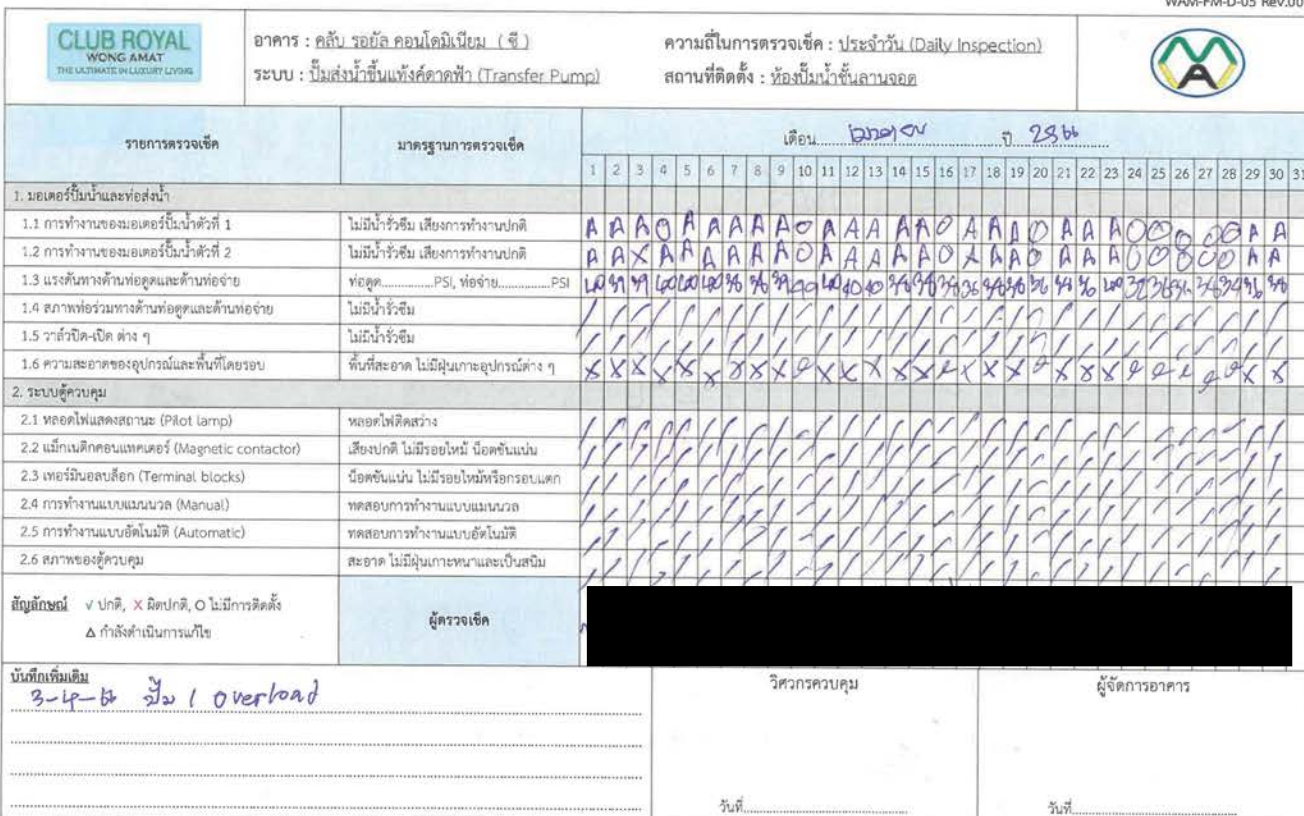 WAM-FM-D-05 Rev.00
CLUB ROYAL
WONG AMAT
THE ULTIMATE IN LUXURY LIVING
อาคาร : คลับ รอยัล คอนโดมิเนียม ( ซี )
ความถี่ในการตรวจเช็ค : ประจำวัน (Daily Inspection)
ระบบ : ปั๊มส่งน้ำขึ้นแท้งค์ดาดฟ้า (Transfer Pump)
สถานที่ติดตั้ง : ห้องปั๊มน้ำชั้นลานจอด
รายการตรวจเช็ค มาตรฐานการตรวจเช็ค
เดือน เมษายน ปี 2566
1 2 3 4 5 6 7 8 9 10 11 12 13 14 15 16 17 18 19 20 21 22 23 24 25 26 27 28 29 30 31
1. มอเตอร์ปั๊มน้ำและท่อส่งน้ำ
1.1 การทำงานของมอเตอร์ปั๊มน้ำตัวที่ 1 ไม่มีน้ำรั่วซึม เสียงการทำงานปกติ A A A O A A A A A O A A A A A O A A A O A A A O O O O O A A
1.2 การทำงานของมอเตอร์ปั๊มน้ำตัวที่ 2 ไม่มีน้ำรั่วซึม เสียงการทำงานปกติ A A X A A A A A A O A A A A A O A A A O A A A O O O O O A A
1.3 แรงดันทางด้านท่อดูดและด้านท่อจ่าย ท่อดูด..............PSI, ท่อจ่าย..............PSI
1.4 สภาพท่อร่วมทางด้านท่อดูดและด้านท่อจ่าย ไม่มีน้ำรั่วซึม
1.5 วาล์วปิด-เปิด ต่าง ๆ ไม่มีน้ำรั่วซึม
1.6 ความสะอาดของอุปกรณ์และพื้นที่โดยรอบ พื้นที่สะอาด ไม่มีฝุ่นเกาะอุปกรณ์ต่าง ๆ
2. ระบบตู้ควบคุม
2.1 หลอดไฟแสดงสถานะ (Pilot lamp) หลอดไฟติดสว่าง
2.2 แม็กเนติกคอนแทคเตอร์ (Magnetic contactor) เสียงปกติ ไม่มีรอยไหม้ น็อตขันแน่น
2.3 เทอร์มินอลบล็อก (Terminal blocks) น็อตขันแน่น ไม่มีรอยไหม้หรือกรอบแตก
2.4 การทำงานแบบแมนนวล (Manual) ทดสอบการทำงานแบบแมนนวล
2.5 การทำงานแบบอัตโนมัติ (Automatic) ทดสอบการทำงานแบบอัตโนมัติ
2.6 สภาพของตู้ควบคุม สะอาด ไม่มีฝุ่นเกาะหนาและเป็นสนิม
สัญลักษณ์ √ ปกติ, X ผิดปกติ, O ไม่มีการติดตั้ง
Δ กำลังดำเนินการแก้ไข
ผู้ตรวจเช็ค
บันทึกเพิ่มเติม
3-4-66 ปั๊ม 1 overload
วิศวกรควบคุม
ผู้จัดการอาคาร
วันที่
วันที่